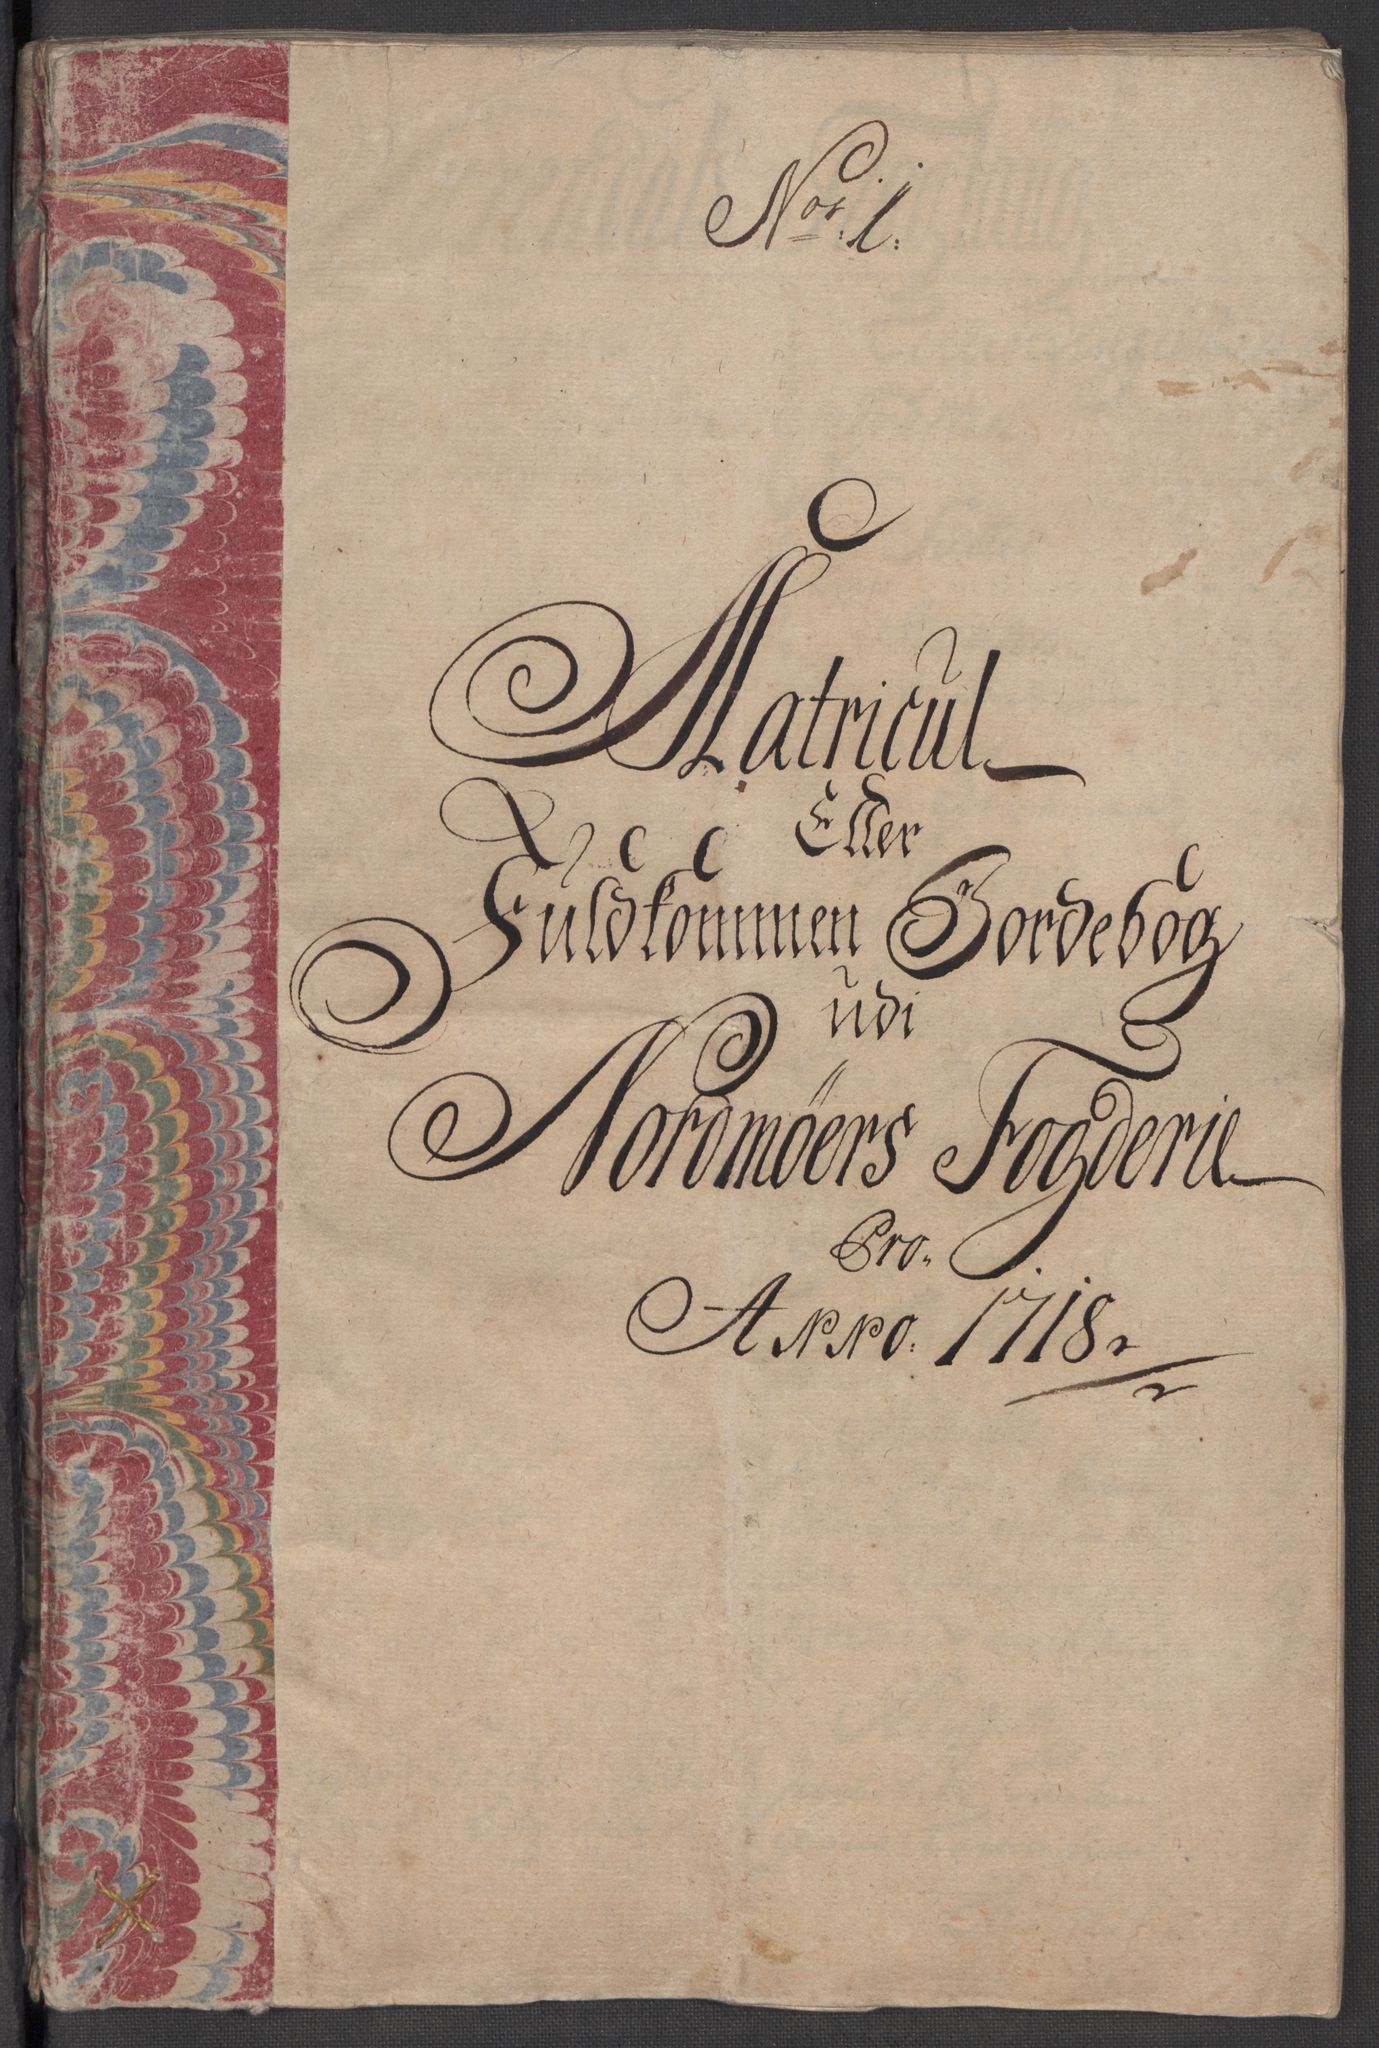 No. 1.
Matricul
Eller
Fuldkommen Jordebog
udi
Nordmöers Fogderie
Pro.
Anno. 1718